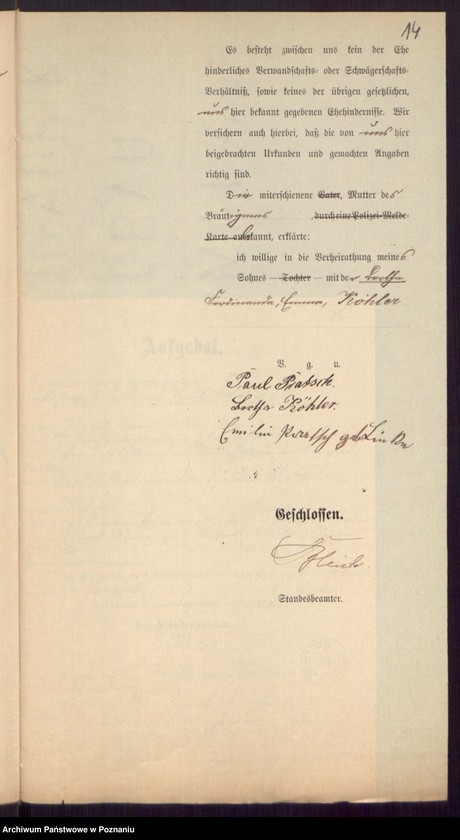 14
Es besteht zwischen uns kein der Ehe
hinderliches Verwandschafts- oder Schwägerschafts-
Verhältniß, sowie keines der übrigen gesetzlichen,
uns hier bekannt gegebenen Ehehindernisse. Wir
versichern auch hierbei, daß die von uns hier
beigebrachten Urkunden und gemachten Angaben
richtig sind.
Die miterschienene Vater, Mutter des
Bräutigams, durch eine Polizei-Melde-
Karte anerkannt, erklärte:
ich willige in die Verheirathung meines
Sohnes Tochter mit der Bertha
Ferdinanda, Emma, Köhler
V. g. u.
Paul Praetsch.
Bertha Köhler.
Emilie Praetsch geb Linke
Geschlossen.
Standesbeamter.
Aufgebot.
Archiwum Państwowe w Poznaniu